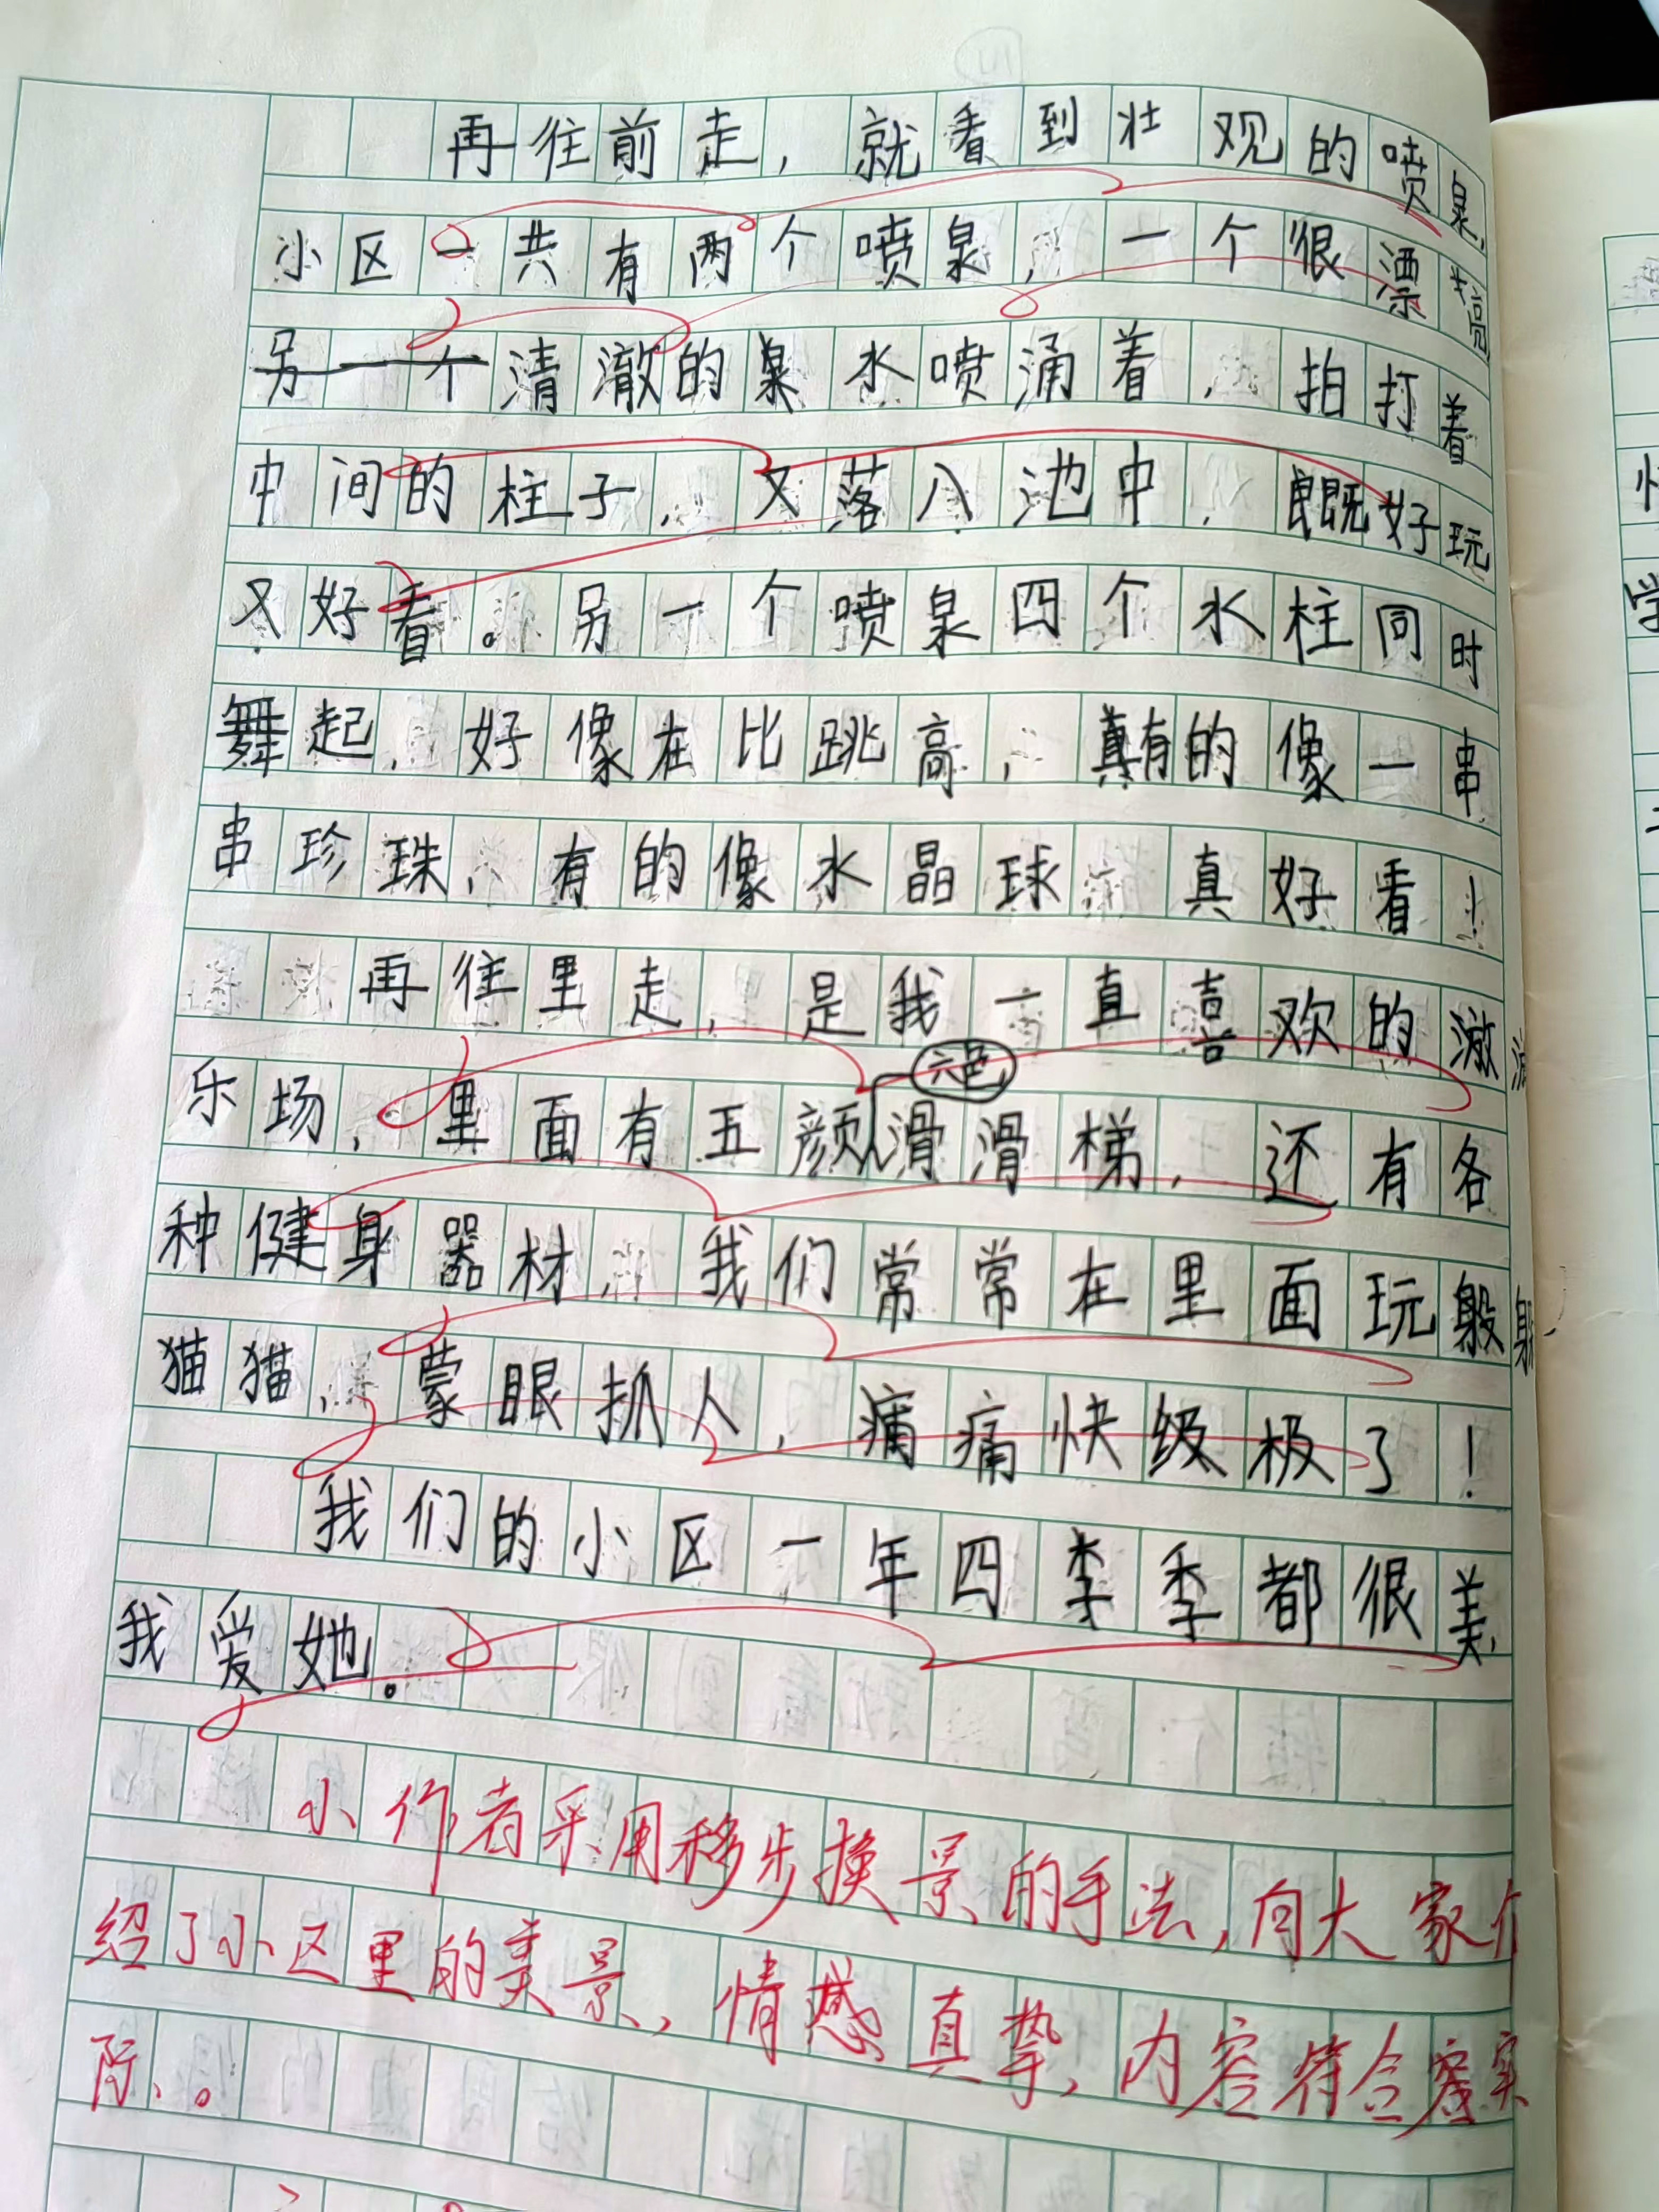 再往前走，就看到壮观的喷泉，
小区一共有两个喷泉，一个很漂亮
另一个清澈的泉水喷涌着，拍打着
中间的柱子，又落入池中，既好玩
又好看。另一个喷泉四个水柱同时
舞起，好像在比跳高，有的像一串
串珍珠，有的像水晶球，真好看！
再往里走，是我一直喜欢的
乐场，里面有五颜六色滑滑梯，还有各
种健身器材，我们常常在里面玩
猫猫，蒙眼抓人，痛痛快极了！
我们的小区一年四季季都很美，
我爱她。
小作者采用移步换景的手法，向大家介
绍了小区里的美景，情感真挚，内容符合实
际。